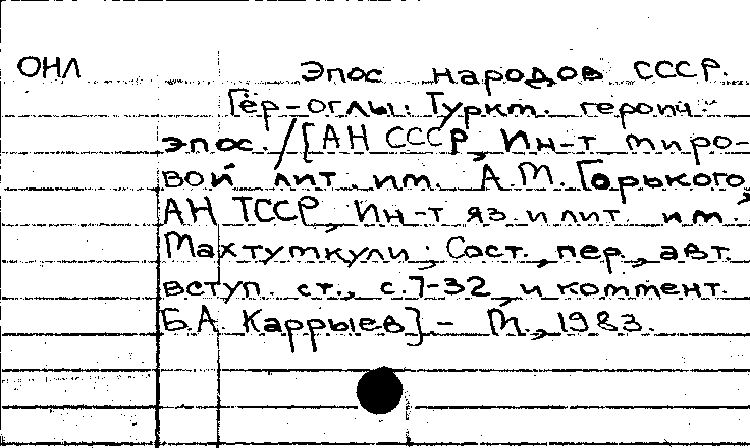 ОНЛ
Эпос народов СССР.
Гёр-оглы: Туркм. героич.
эпос. / [АН СССР, Ин-т миро-
вой лит. им. А.М. Горького,
АН ТССР, Ин-т яз. и лит. им.
Махтумкули; Сост., пер., авт.
вступ. ст., с.7-32, и коммент.
Б.А. Каррыев] - М., 1983.